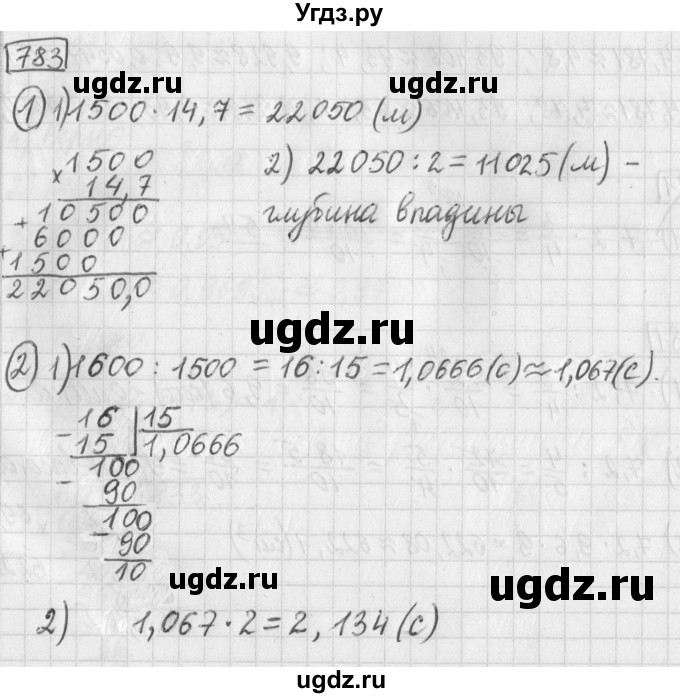 Угдз.ру
783
ugdz.ru ugdz.ru
① 1) 1500 · 14,7 = 22050 (м)
1500
× 14,7
+ 10500
6000
+ 1500
22050,0
2) 22050 : 2 = 11025 (м) –
глубина впадины
ugdz.ru
② 1) 1600 : 1500 = 16 : 15 = 1,0666 (с) ≈ 1,067 (с).
16 | 15
– 15 | 1,0666
100
– 90
100
– 90
10
ugdz.ru ugdz.ru
2) 1,067 · 2 = 2,134 (с)
ugdz.ru